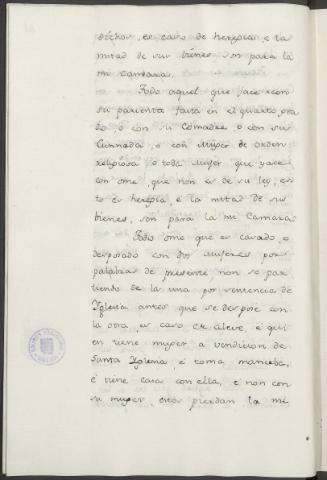 dichos, es caso de heregia, e la
mitad de sus bienes son para la
mi camara.
Todo aquel que jace con
su parienta fasta en el quarto gra
do, o con su Comadre, o con su
Cunnada, o con Muger de orden
religiosa, o toda Muger que yace
con ome, que non es de su ley, es
to es heregia, e la mitad de sus
bienes, son para la mi Camara.
Todo ome que es casado, o
desposado con dos Mugeres por
palabras de presente, non se par
tiendo de la una por sentencia de
Iglesia antes que se despose con
la otra, es caso de aleve, e qui
en tiene muger a vendicion de
Santa Iglesia, é toma manceba,
é tiene casa con ella, e non con
su muger, estos pierdan la me